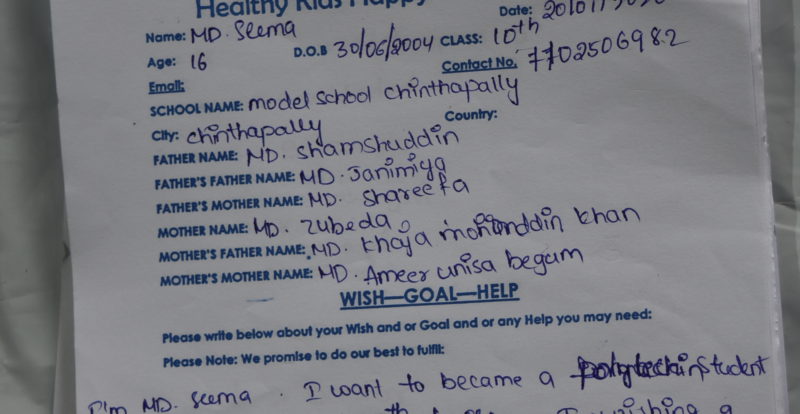 Healthy Kids Happy
Date:
Name: MD. Seema
Age: 16 D.O.B 30/06/2004 CLASS: 10th
Contact No. 7702506982
Email:
SCHOOL NAME: model school chinthapally
City: chinthapally Country:
FATHER NAME: MD. shamshuddin
FATHER'S FATHER NAME: MD. Janimiya
FATHER'S MOTHER NAME: MD. shareefa
MOTHER NAME: MD. zubeda
MOTHER'S FATHER NAME: MD. khaja khan
MOTHER'S MOTHER NAME: MD. Ameer unisa begum
WISH—GOAL—HELP
Please write below about your Wish and or Goal and or any Help you may need:
Please Note: We promise to do our best to fulfil:
I'm MD. seema. I want to became a student